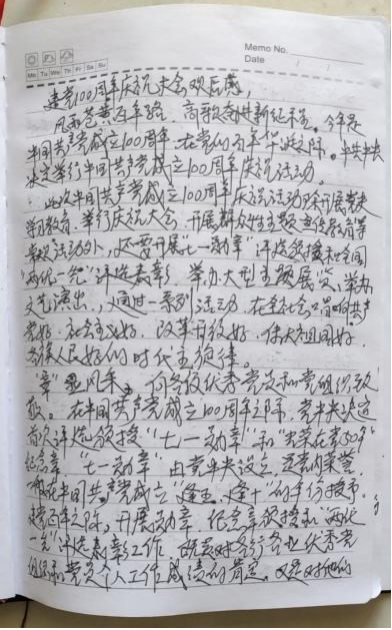 Memo No.
Date
Mo Tu We Th Fr Sa Su
建党100周年庆祝大会观后感
风雨苍黄百年路，高歌奋进新纪元。今年是
中国共产党成立100周年，在党的百年华诞之际，中共中央
决定举行中国共产党成立100周年庆祝活动。
此次中国共产党成立100周年庆祝活动除开展党史
学习教育，举行庆祝大会，开展群众性主题宣传教育等
活动外，还要开展“七一勋章”评选颁授和全国
“两优一先”评选表彰，举办大型主题展览，举办
文艺演出，通过一系列活动，在全社会唱响共产
党好，社会主义好，改革开放好，伟大祖国好，
各族人民好的时代主旋律。
“章”显风采，向各级优秀党员和党组织致
敬。在中国共产党成立100周年之际，党中央决定
首次评选颁授“七一勋章”和“光荣在党50年”
纪念章，“七一勋章”由党中央设立，是党内荣誉，
一般在中国共产党成立“逢五、逢十”的年份授予，
建党百年之际，开展勋章、纪念章颁授和“两优
一先”评选表彰工作，既是对各行各业优秀党
组织和党员个人工作成绩的肯定，又是对他们